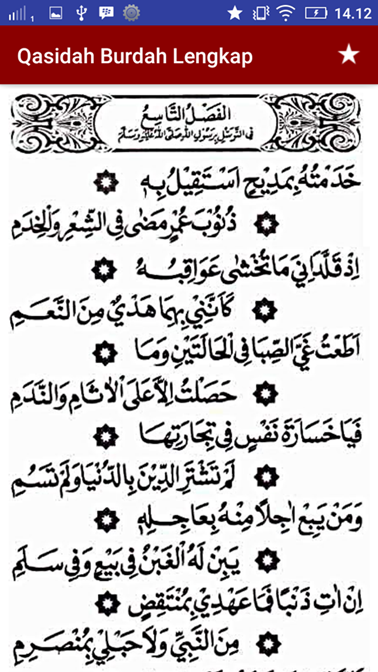 14.12
Qasidah Burdah Lengkap
الفَصْلُ التَّاسِعُ
فِى التَّوَسُّلِ بِرَسُوْلِ اللهِ صَلَّى اللهُ عَلَيْهِ وَسَلَّمَ
خَدَمْتُهُ بِمَدِيْحٍ اَسْتَقِيْلُ بِهٖ
ذُنُوْبَ عُمْرٍ مَضٰى فِى الشِّعْرِ وَالْخِدَمِ
اِذْ قَلَّدَانِيَ مَا تُخْشٰى عَوَاقِبُهُ
كَاَنَّنِيْ بِهِمَا هَدْيٌ مِنَ النَّعَمِ
اَطَعْتُ غَيَّ الصِّبَا فِى الْحَالَتَيْنِ وَمَا
حَصَلْتُ اِلاَّ عَلَى الْاٰثَامِ وَالنَّدَمِ
فَيَا خَسَارَةَ نَفْسٍ فِيْ تِجَارَتِهَا
لَمْ تَشْتَرِ الدِّيْنَ بِالدُّنْيَا وَلَمْ تَسُمِ
وَمَنْ يَبِعْ اٰجِلًا مِنْهُ بِعَاجِلِهٖ
يَبِنْ لَهُ الْغَبْنُ فِيْ بَيْعٍ وَفِيْ سَلَمِ
اِنْ اٰتِ ذَنْبًا فَمَا عَهْدِيْ بِمُنْتَقِضٍ
مِنَ النَّبِيِّ وَلاَ حَبْلِيْ بِمُنْصَرِمِ